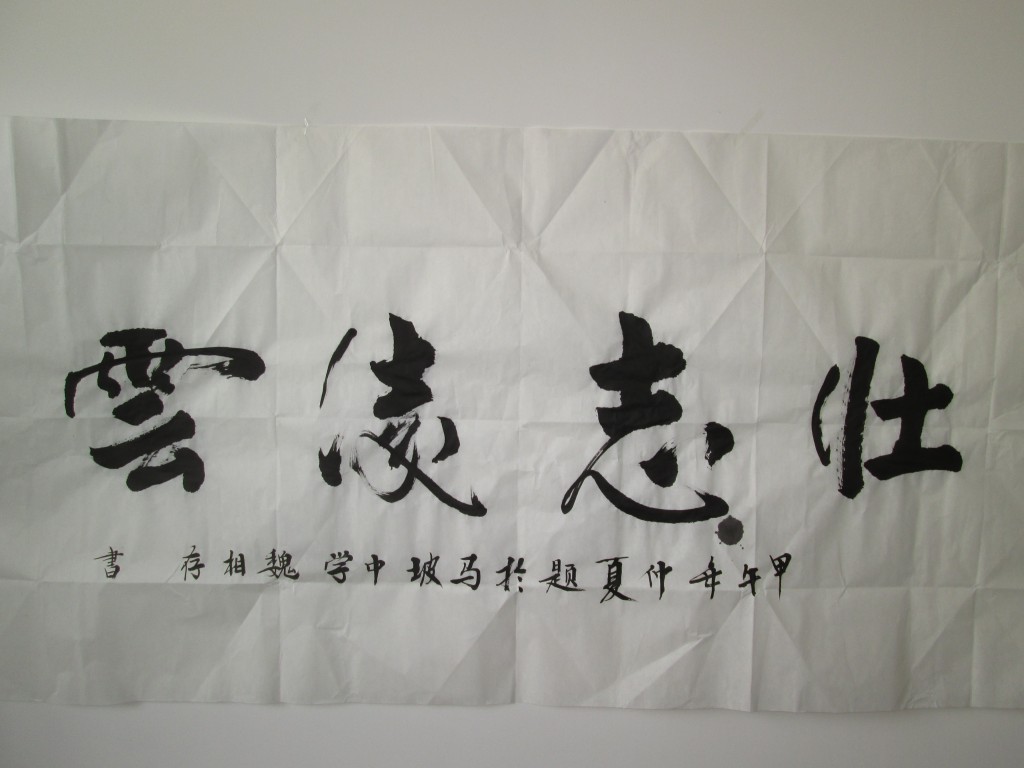 壮志凌雲
甲午年仲夏题於马坡中学魏相存書